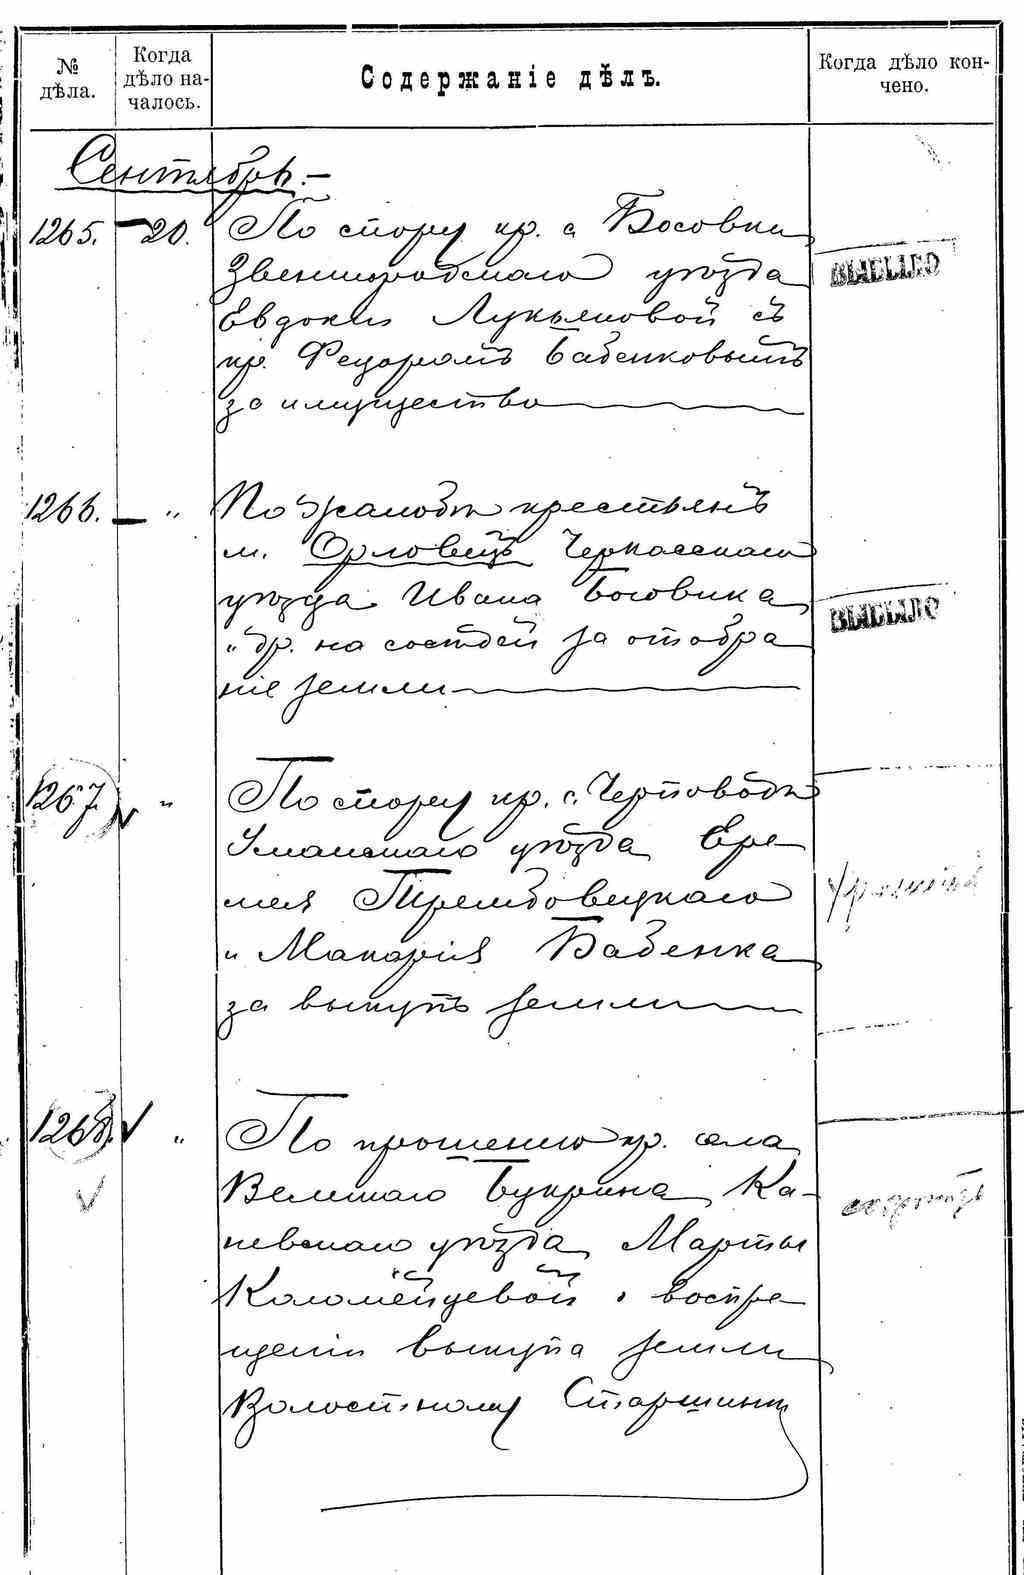 №
дѣла.
Когда
дѣло на-
чалось.
Содержаніе дѣлъ.
Когда дѣло кон-
чено.
Сентябрь.-
1265. - 20. По спору кр. с Босовки
Звенигородскаго уѣзда
Евдокіи Лукьяновой съ
кр. Федоромъ Бабенковымъ
за имущество
ВЫБЫЛО
1266. - " По жалобѣ крестьянъ
м. Орловецъ Черкасскаго
уѣзда Ивана Боговика
и др. на сосѣдей за отобра
ніе земли
ВЫБЫЛО
1267. " По спору кр. с. Черповоды
Уманскаго уѣзда Ере
мея Трембовецкаго
и Макарія Бабенка
за выкупъ земли
1268. " По прошенію кр. села
Великаго Букрина Ка-
невскаго уѣзда Марты
Коломейцевой о воспре
щеніи выкупа земли
Волостному Старшинѣ